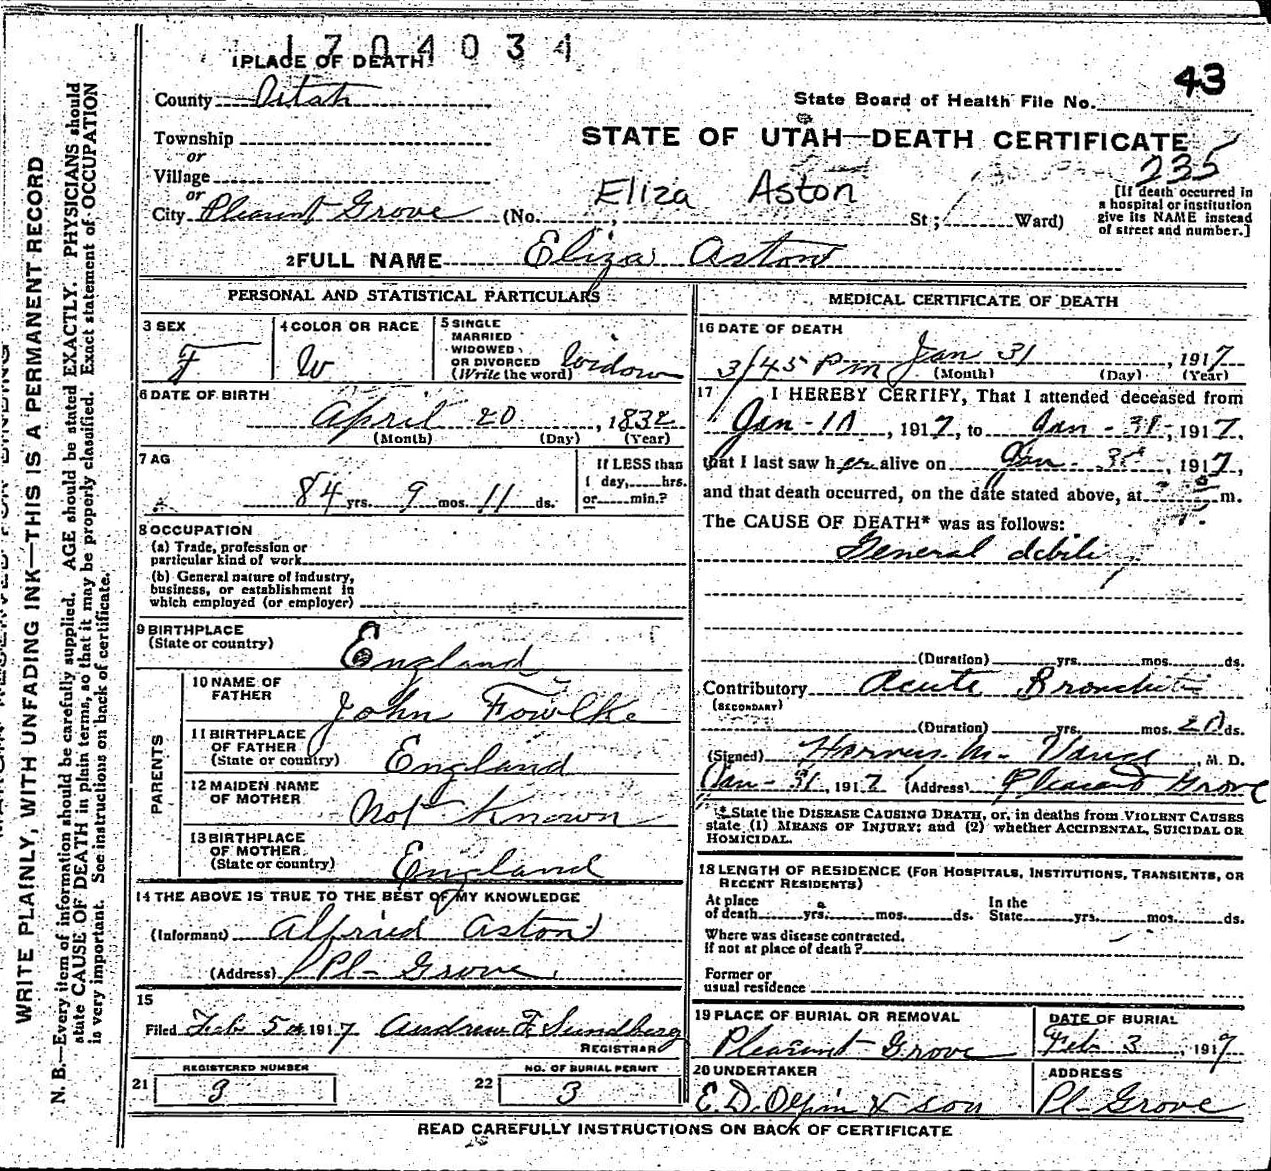 1704034
1 PLACE OF DEATH
43
County Utah
State Board of Health File No.
Township
STATE OF UTAH—DEATH CERTIFICATE
or
Village
235
or
Eliza Aston
City Pleasant Grove (No. St; Ward)
[If death occurred in
a hospital or institution
give its NAME instead
of street and number.]
2 FULL NAME Eliza Aston
PERSONAL AND STATISTICAL PARTICULARS
3 SEX
F
4 COLOR OR RACE
W
5 SINGLE
MARRIED
WIDOWED
OR DIVORCED
(Write the word) widow
6 DATE OF BIRTH
April 20, 1832
(Month) (Day) (Year)
7 AG
84 yrs. 9 mos. 11 ds.
If LESS than
1 day, hrs.
or min.?
8 OCCUPATION
(a) Trade, profession or
particular kind of work
(b) General nature of industry,
business, or establishment in
which employed (or employer)
9 BIRTHPLACE
(State or country) England
PARENTS
10 NAME OF
FATHER John Fowlke
11 BIRTHPLACE
OF FATHER
(State or country) England
12 MAIDEN NAME
OF MOTHER Not Known
13 BIRTHPLACE
OF MOTHER
(State or country) England
14 THE ABOVE IS TRUE TO THE BEST OF MY KNOWLEDGE
(Informant) Alfried Aston
(Address) Pl- Grove
15
Filed Feb 5th 1917 Andrew F. Sundberg
REGISTRAR
21 REGISTERED NUMBER
3
22 NO. OF BURIAL PERMIT
3
MEDICAL CERTIFICATE OF DEATH
16 DATE OF DEATH
3/45 pm Jan 31, 1917
(Month) (Day) (Year)
17 I HEREBY CERTIFY, That I attended deceased from
Jan - 10, 1917, to Jan - 31-, 1917,
that I last saw her alive on Jan - 1917,
and that death occurred, on the date stated above, at m.
The CAUSE OF DEATH* was as follows:
General debili
(Duration) yrs. mos. ds.
Contributory Acute Bronchitis
(SECONDARY)
(Duration) yrs. mos. 20 ds.
(Signed) M. Vance, M. D.
Jan - 31, 1917 (Address) Pleasant Grove
* State the DISEASE CAUSING DEATH, or, in deaths from VIOLENT CAUSES
state (1) MEANS OF INJURY; and (2) whether ACCIDENTAL, SUICIDAL OR
HOMICIDAL.
18 LENGTH OF RESIDENCE (FOR HOSPITALS, INSTITUTIONS, TRANSIENTS, OR
RECENT RESIDENTS)
At place
of death yrs. mos. ds.
In the
State yrs. mos. ds.
Where was disease contracted,
if not at place of death?
Former or
usual residence
19 PLACE OF BURIAL OR REMOVAL
Pleasant Grove
DATE OF BURIAL
Feb 3, 1917
20 UNDERTAKER
E. D. Olpin & son
ADDRESS
Pl- Grove
READ CAREFULLY INSTRUCTIONS ON BACK OF CERTIFICATE
WRITE PLAINLY, WITH UNFADING INK—THIS IS A PERMANENT RECORD
N. B.—Every item of information should be carefully supplied. AGE should be stated EXACTLY. PHYSICIANS should
state CAUSE OF DEATH in plain terms, so that it may be properly classified. Exact statement of OCCUPATION
is very important. See instructions on back of certificate.